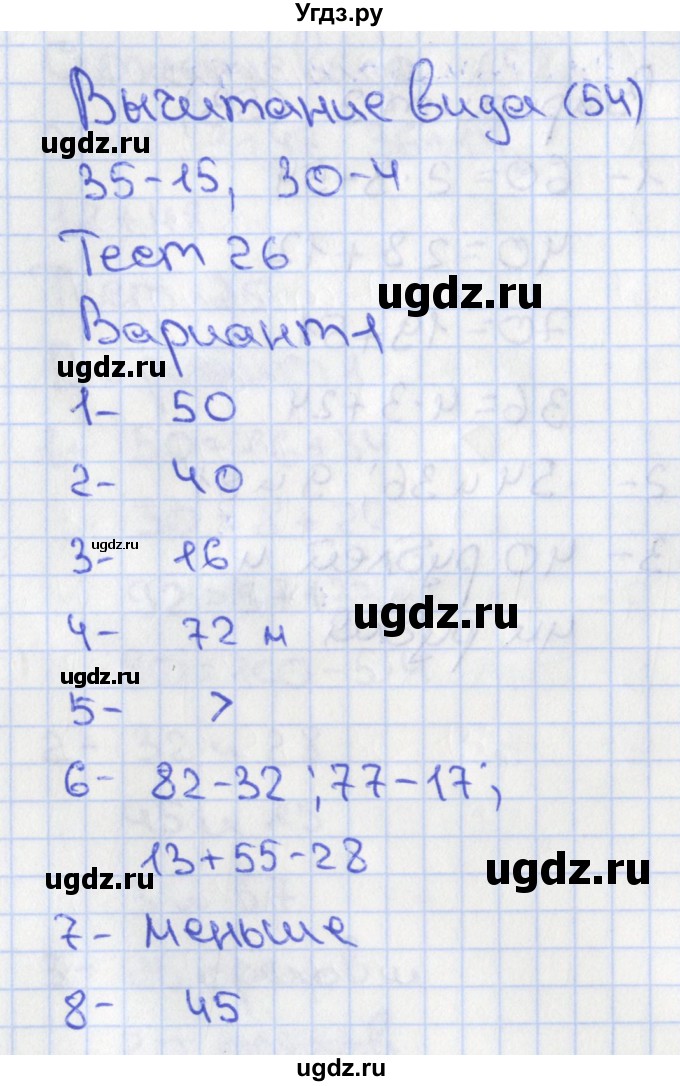 Угдз.ру
Вычитание вида (54)
ugdz.ru
35-15, 30-4
Тест 26
ugdz.ru
Вариант 1
ugdz.ru
1- 50
2- 40
ugdz.ru
3- 16
ugdz.ru
4- 72 м
ugdz.ru
5- >
6- 82-32; 77-17;
13+55-28
ugdz.ru
ugdz.ru
7- меньше
8- 45
ugdz.ru